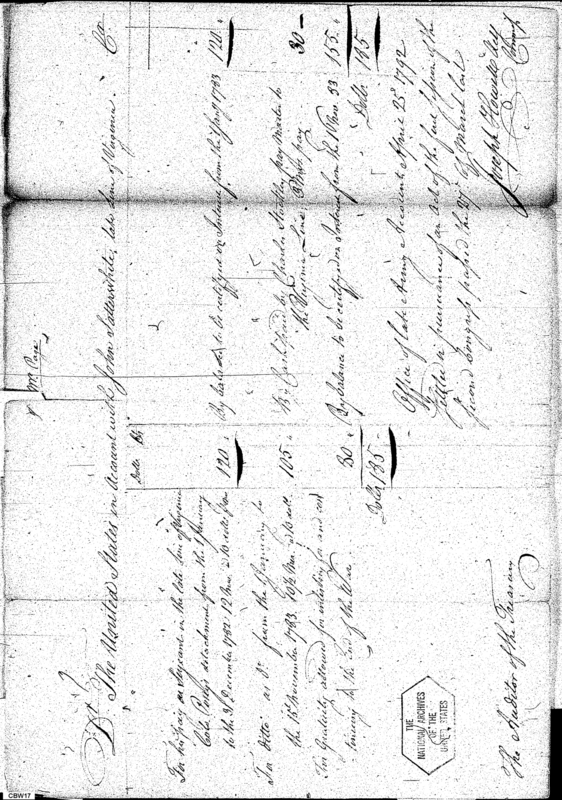 Mr Page
Dr. The United States in Account with John Satterwhite, late Line of Virginia. Cr
Dolls
For his pay as Sergeant in the late line of Virginia
Cols. detachment from the 1 January
to the 31 December 1782. 12 Mos. 120
For ditto as Dr. from the 1 January to
the 15 November 1783. 10½ Mos. 105
For Gratuity allowed for enlisting for and
serving to the End of the War 80
Dolls 185
By balance to be certified on Interest from the 1 Jany 1783 120
By Cash paid by Charles pay Master to
the Virginia Line 30
By balance to be certified on Interest from the 155
Dolls 185
Office of late Army Accounts April 25 1792
Settled in pursuance of an Act of the of the
second Congress passed the 27 of March last
Joseph Howell
The Auditor of the Treasury
THE
NATIONAL ARCHIVES
OF THE
UNITED STATES
CBW17